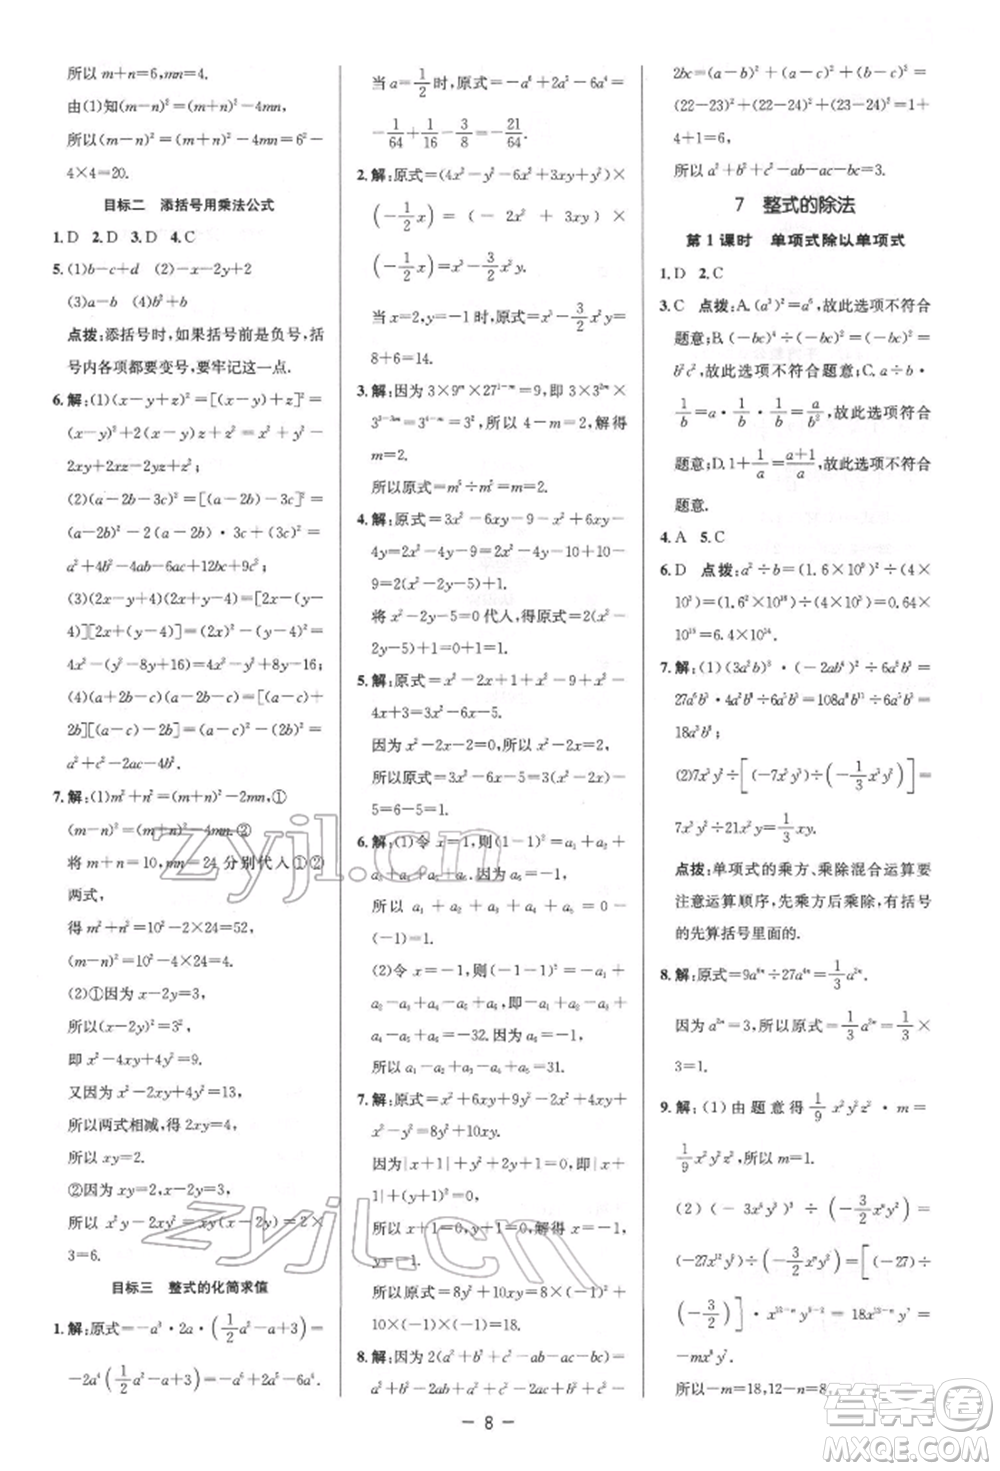 所以 m+n=6,mn=4.
由(1)知(m-n)²=(m+n)²-4mn,
所以(m-n)²=(m+n)²-4mn=6²-
4×4=20.
目标二 添括号用乘法公式
1.D 2.D 3.D 4.C
5.(1)b-c+d (2)-x²-2xy+2y²
(3)a-b (4)b²+b
点拨:添括号时,如果括号前是负号,括
号内各项都要变号,要牢记这一点.
6.解:(1)(x-y+z)²=[(x-y)+z]²=
(x-y)²+2(x-y)z+z²=x²+y²-
2xy+2xz-2yz+z².
(2)(a-2b-3c)²=[(a-2b)-3c]²=
(a-2b)²-2(a-2b)·3c+(3c)²=
a²-4ab+4b²-6ac+12bc+9c².
(3)(2x-y+4)(2x+y-4)=[2x-(y-
4)][2x+(y-4)]=(2x)²-(y-4)²=
4x²-(y²-8y+16)=4x²-y²+8y-16.
(4)(a+2b-c)(a-2b-c)=[(a-c)+
2b][(a-c)-2b]=(a-c)²-(2b)²=
a²-2ac+c²-4b².
7.解:(1)m²+n²=(m+n)²-2mn,①
(m-n)²=(m+n)²-4mn.②
将 m+n=10,mn=24 分别代入①②
两式,
得 m²+n²=10²-2×24=52,
(m-n)²=10²-4×24=4.
(2)①因为 x-2y=3,
所以(x-2y)²=3²,
即 x²-4xy+4y²=9.
又因为 x²-2xy+4y²=13,
所以两式相减,得 2xy=4,
所以 xy=2.
②因为 xy=2,x-2y=3,
所以 x²y-2xy²=xy(x-2y)=2×
3=6.
目标三 整式的化简求值
1.解:原式=-a³·2a·(1/2 a²-a+3)=
-2a⁴(1/2 a²-a+3)=-a⁶+2a⁵-6a⁴.
当 a=1/2时,原式=-a⁶+2a⁵-6a⁴=
-1/64+1/16-3/8=-21/64.
2.解:原式=(4x²-y²-x²+y²)×
(-1/2 x)²=(-x²+2xy+3x²)×
x³-3/2 x²y-2x²y²
当 x=2,y=-1 时,原式=
8+6=14.
3.解:因为 3×9^m×27^(1-m)=9,即 3×3^2m×
3^(3-3m)=3^(4-m)=3²,所以 4-m=2,解得
m=2.
所以原式=m⁵÷m⁵=m=2.
4.解:原式=3x²-6xy-9-x²+6xy-
4y=2x²-4y-9=2(x²-2y-10)+10
-9=2(x²-2y-5)+1.
将 x²-2y-5=0代入,原式=2(x²-
2y-5)+1=0+1=1.
5.解:原式=x²-2x+1+x²-9+x²-
4x+3=3x²-6x-5.
因为 x²-2x-2=0,所以 x²-2x=2,
所以原式=3x²-6x-5=3(x²-2x)
-5=6-5=1.
6.解:(1)令 x=1,则(1-1)²=a₁+a₂+
所以 a₁+a₂+a₃+a₄+a₅=0-
(-1)=1.
(2)令 x=-1,则(-1-1)⁵=-a₁+
a₂-a₃+a₄-a₅+a₆,即-a₁+a₂-
a₃+a₄-a₅+a₆=-32.因为 a₆=-1,
所以 a₁-a₂+a₃-a₄+a₅=31.
7.解:原式=x²+6xy+9y²-x²+4xy
-y²=8y²+10xy.
因为|x+1|+y²-2y+1=0,所以
|x+1|+(y-1)²=0,
所以 x+1=0,y-1=0,解得 x=-1,
y=1.
所以原式=8y²+10xy=8×1²+
10×(-1)×1=-2.
8.解:因为 2(a²+b²+c²-ab-ac-bc)
=a²+b²-2ab+a²+c²-2ac+b²+c²-
2bc=(a-b)²+(a-c)²+(b-c)²=
(22-23)²+(22-24)²+(23-24)²=1+
4+1=6,
所以 a²+b²+c²-ab-ac-bc=3.
7 整式的除法
第1课时 单项式除以单项式
1.D 2.C
3.C 点拨:A.(a³)²=a⁶,故此选项不符合
题意;B.(-bc)⁴÷(-bc)²=(-bc)²=
b²c²,故此选项不符合题意;C.a÷b·
1/b=a·1/b·1/b=a/b²,故此选项符合
题意;D.1+1/a=(a+1)/a,故此选项不符合
题意.
4.A 5.C
6.D 点拨:a²÷b=(1.6×10⁹)²÷(4×
10³)=(1.6²×10¹⁸)÷(4×10³)=0.64×
10¹⁵=6.4×10¹⁴.
7.解:(1)(3a²b)³·(-2ab⁴)²÷6a⁵b³=
27a⁶b³·4a²b⁸÷6a⁵b³=108a⁸b¹¹÷6a⁵b³=
18a³b⁸.
(2)7x³y²÷[(-7x⁵y³)÷(-1/3 x³y²)]=
7x³y²÷21x²y=1/3 xy.
点拨:单项式的乘方、乘除混合运算要
注意运算顺序,先乘方后乘除,有括号
的先算括号里面的.
8.解:原式=9a⁶ⁿ÷27a⁴ⁿ=1/3 a²ⁿ.
因为 a²ⁿ=3,所以原式=1/3 a²ⁿ=1/3×
3=1.
9.解:(1)由题意得 1/9 x²y²z²·m=
1/9 x²y²z²,所以 m=1.
(2)(-3x⁴y³)³÷(-3/2 xⁿy²)=
(-27x¹²y⁹)÷(-3/2 xⁿy²)=[(-27)÷
(-3/2)]·x¹²⁻ⁿy⁹⁻²=18x¹²⁻ⁿy⁷=
mx⁸y⁷.
所以 m=18,12-n=8,
— 8 —
zyjl.cn
zyjl.cn
答案圈
MXQE.COM